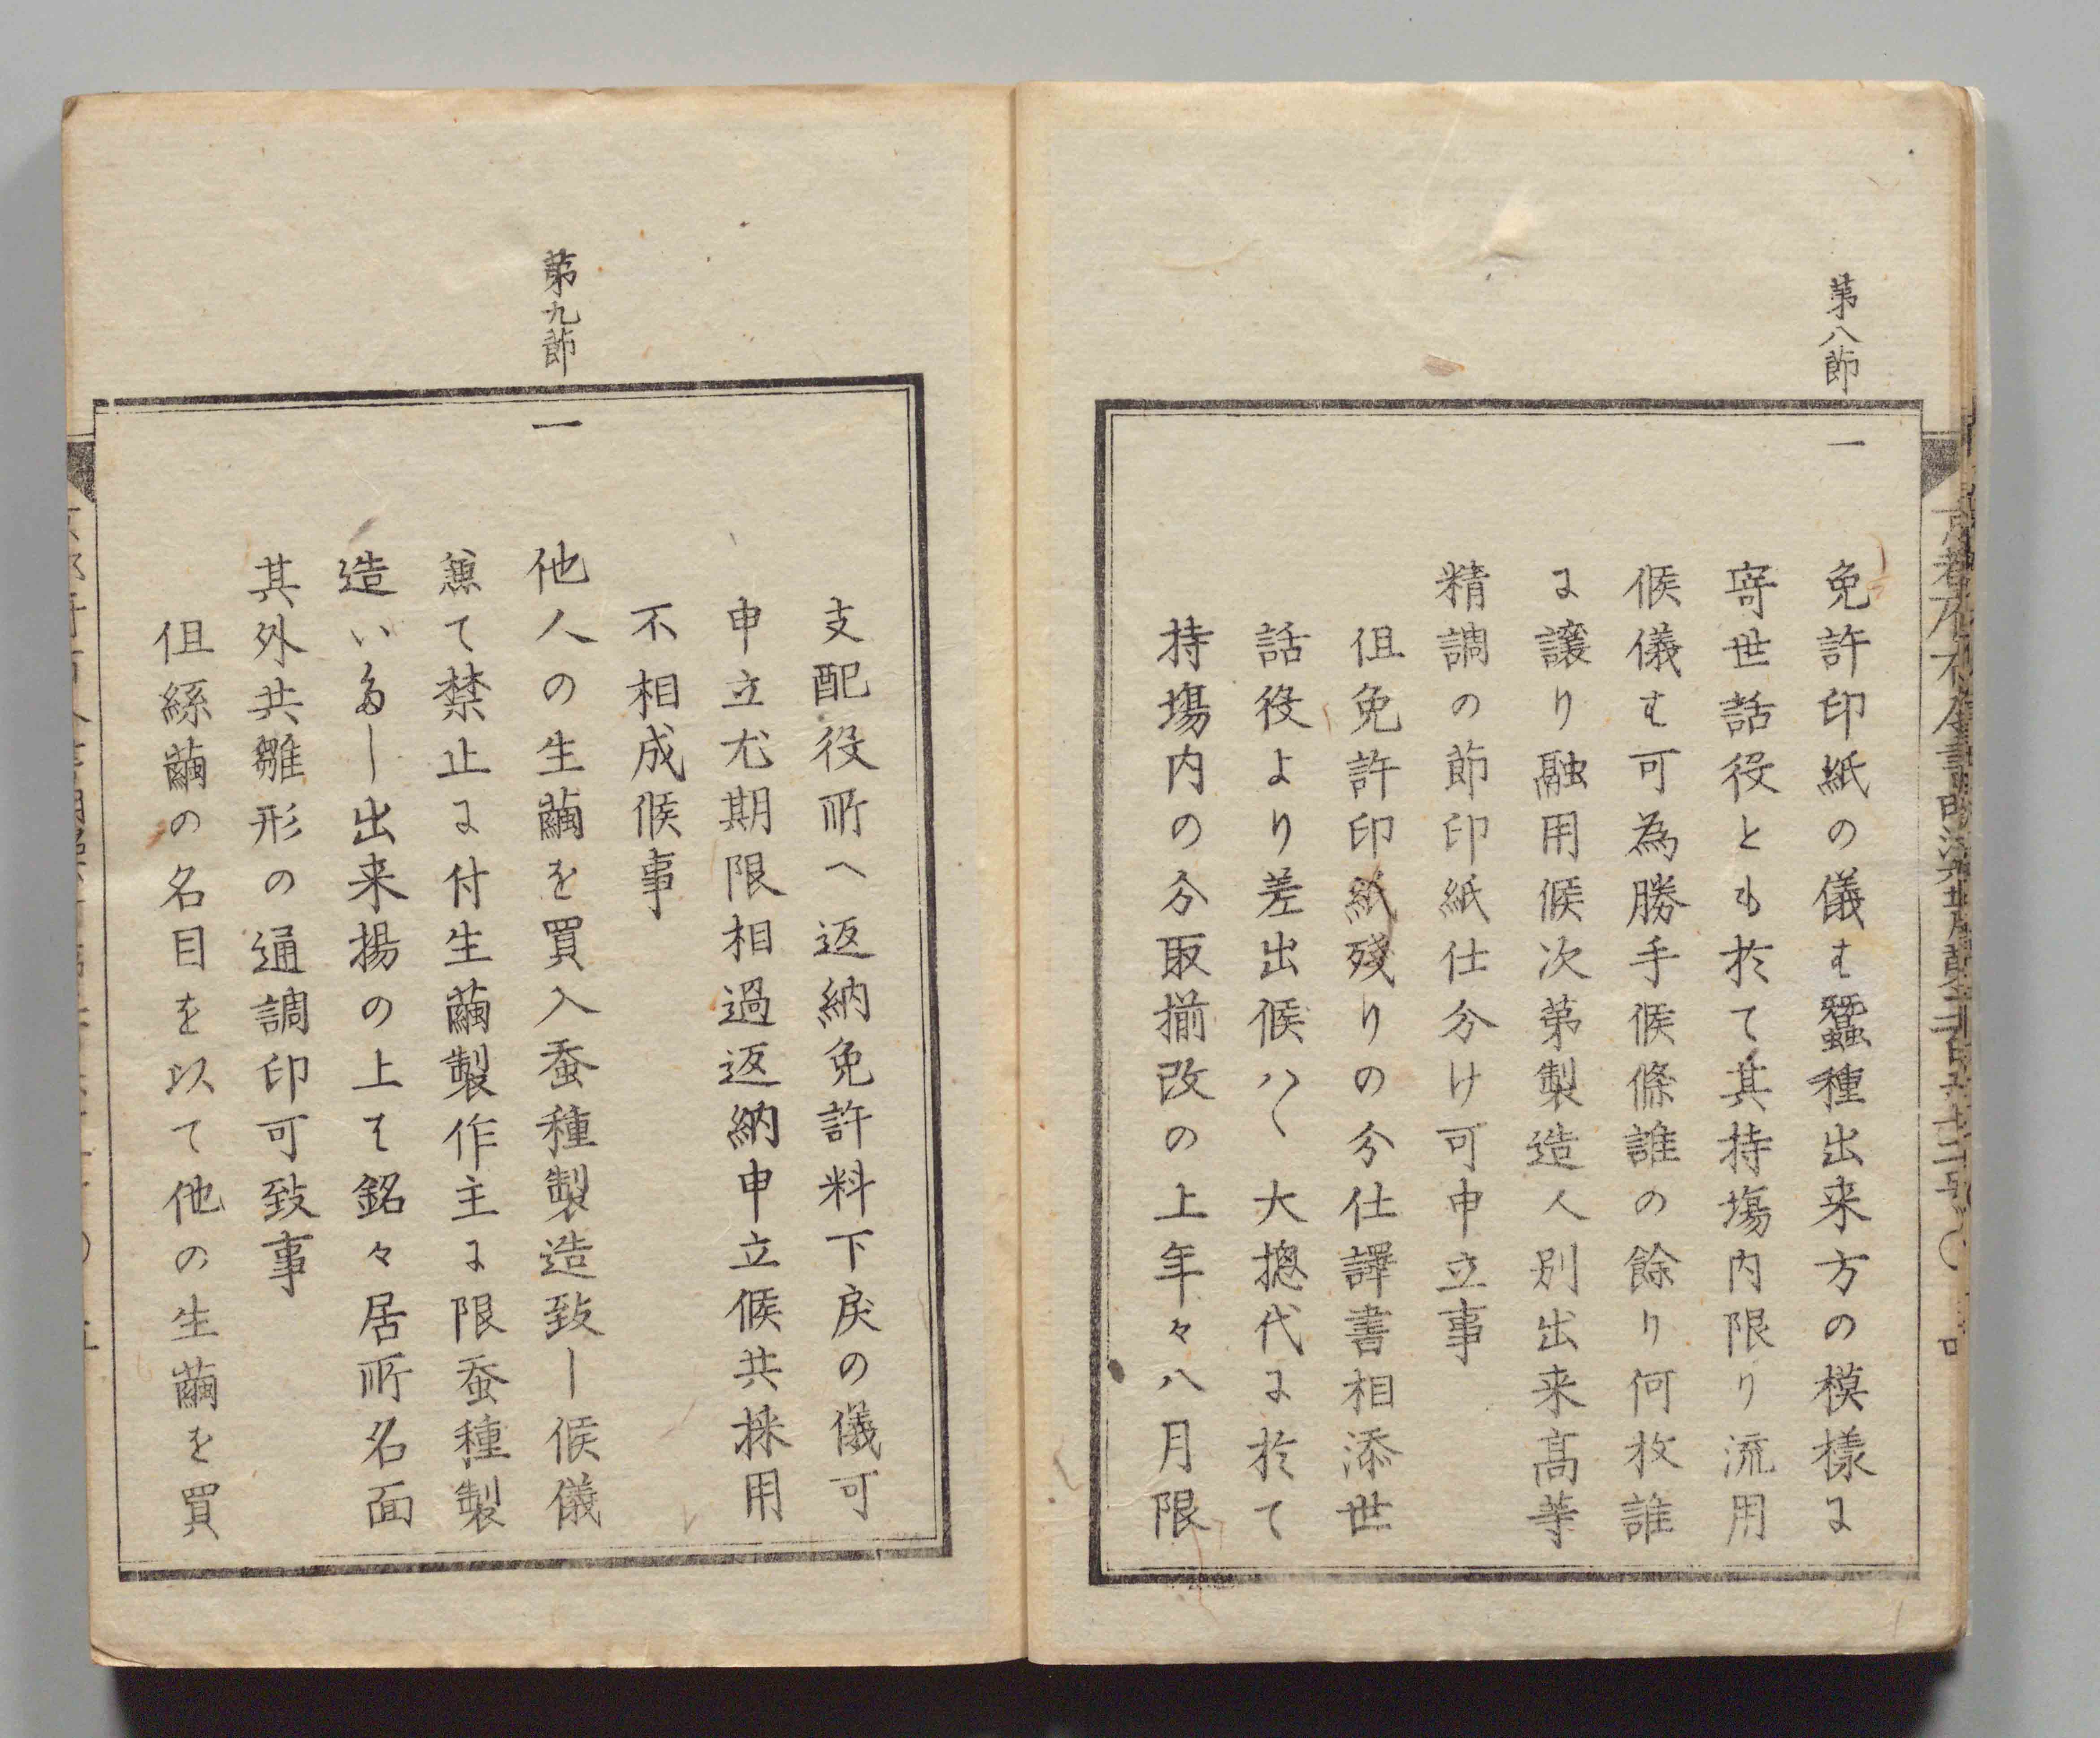 第八節
一
免許印紙の儀も蠶種出来方の模様に
寄世話役とも於て其持場内限り流用
候儀も可為勝手候條誰の餘り何枚誰
に譲り融用候次第製造人別出来髙等
精調の節印紙仕分け可申立事
但免許印紙殘りの分仕譯書相添世
話役より差出候ハヽ大摠代に於て
持場内の分取揃改の上年々八月限
支配役所へ返納免許料下戻の儀可
申立尤期限相過返納申立候共採用
不相成候事
第九節
一
他人の生繭を買入蚕種製造致し候儀
兼て禁止に付生繭製作主に限蚕種製
造いたし出来揚の上は銘々居所名面
其外共雛形の通調印可致事
但絲繭の名目を以て他の生繭を買